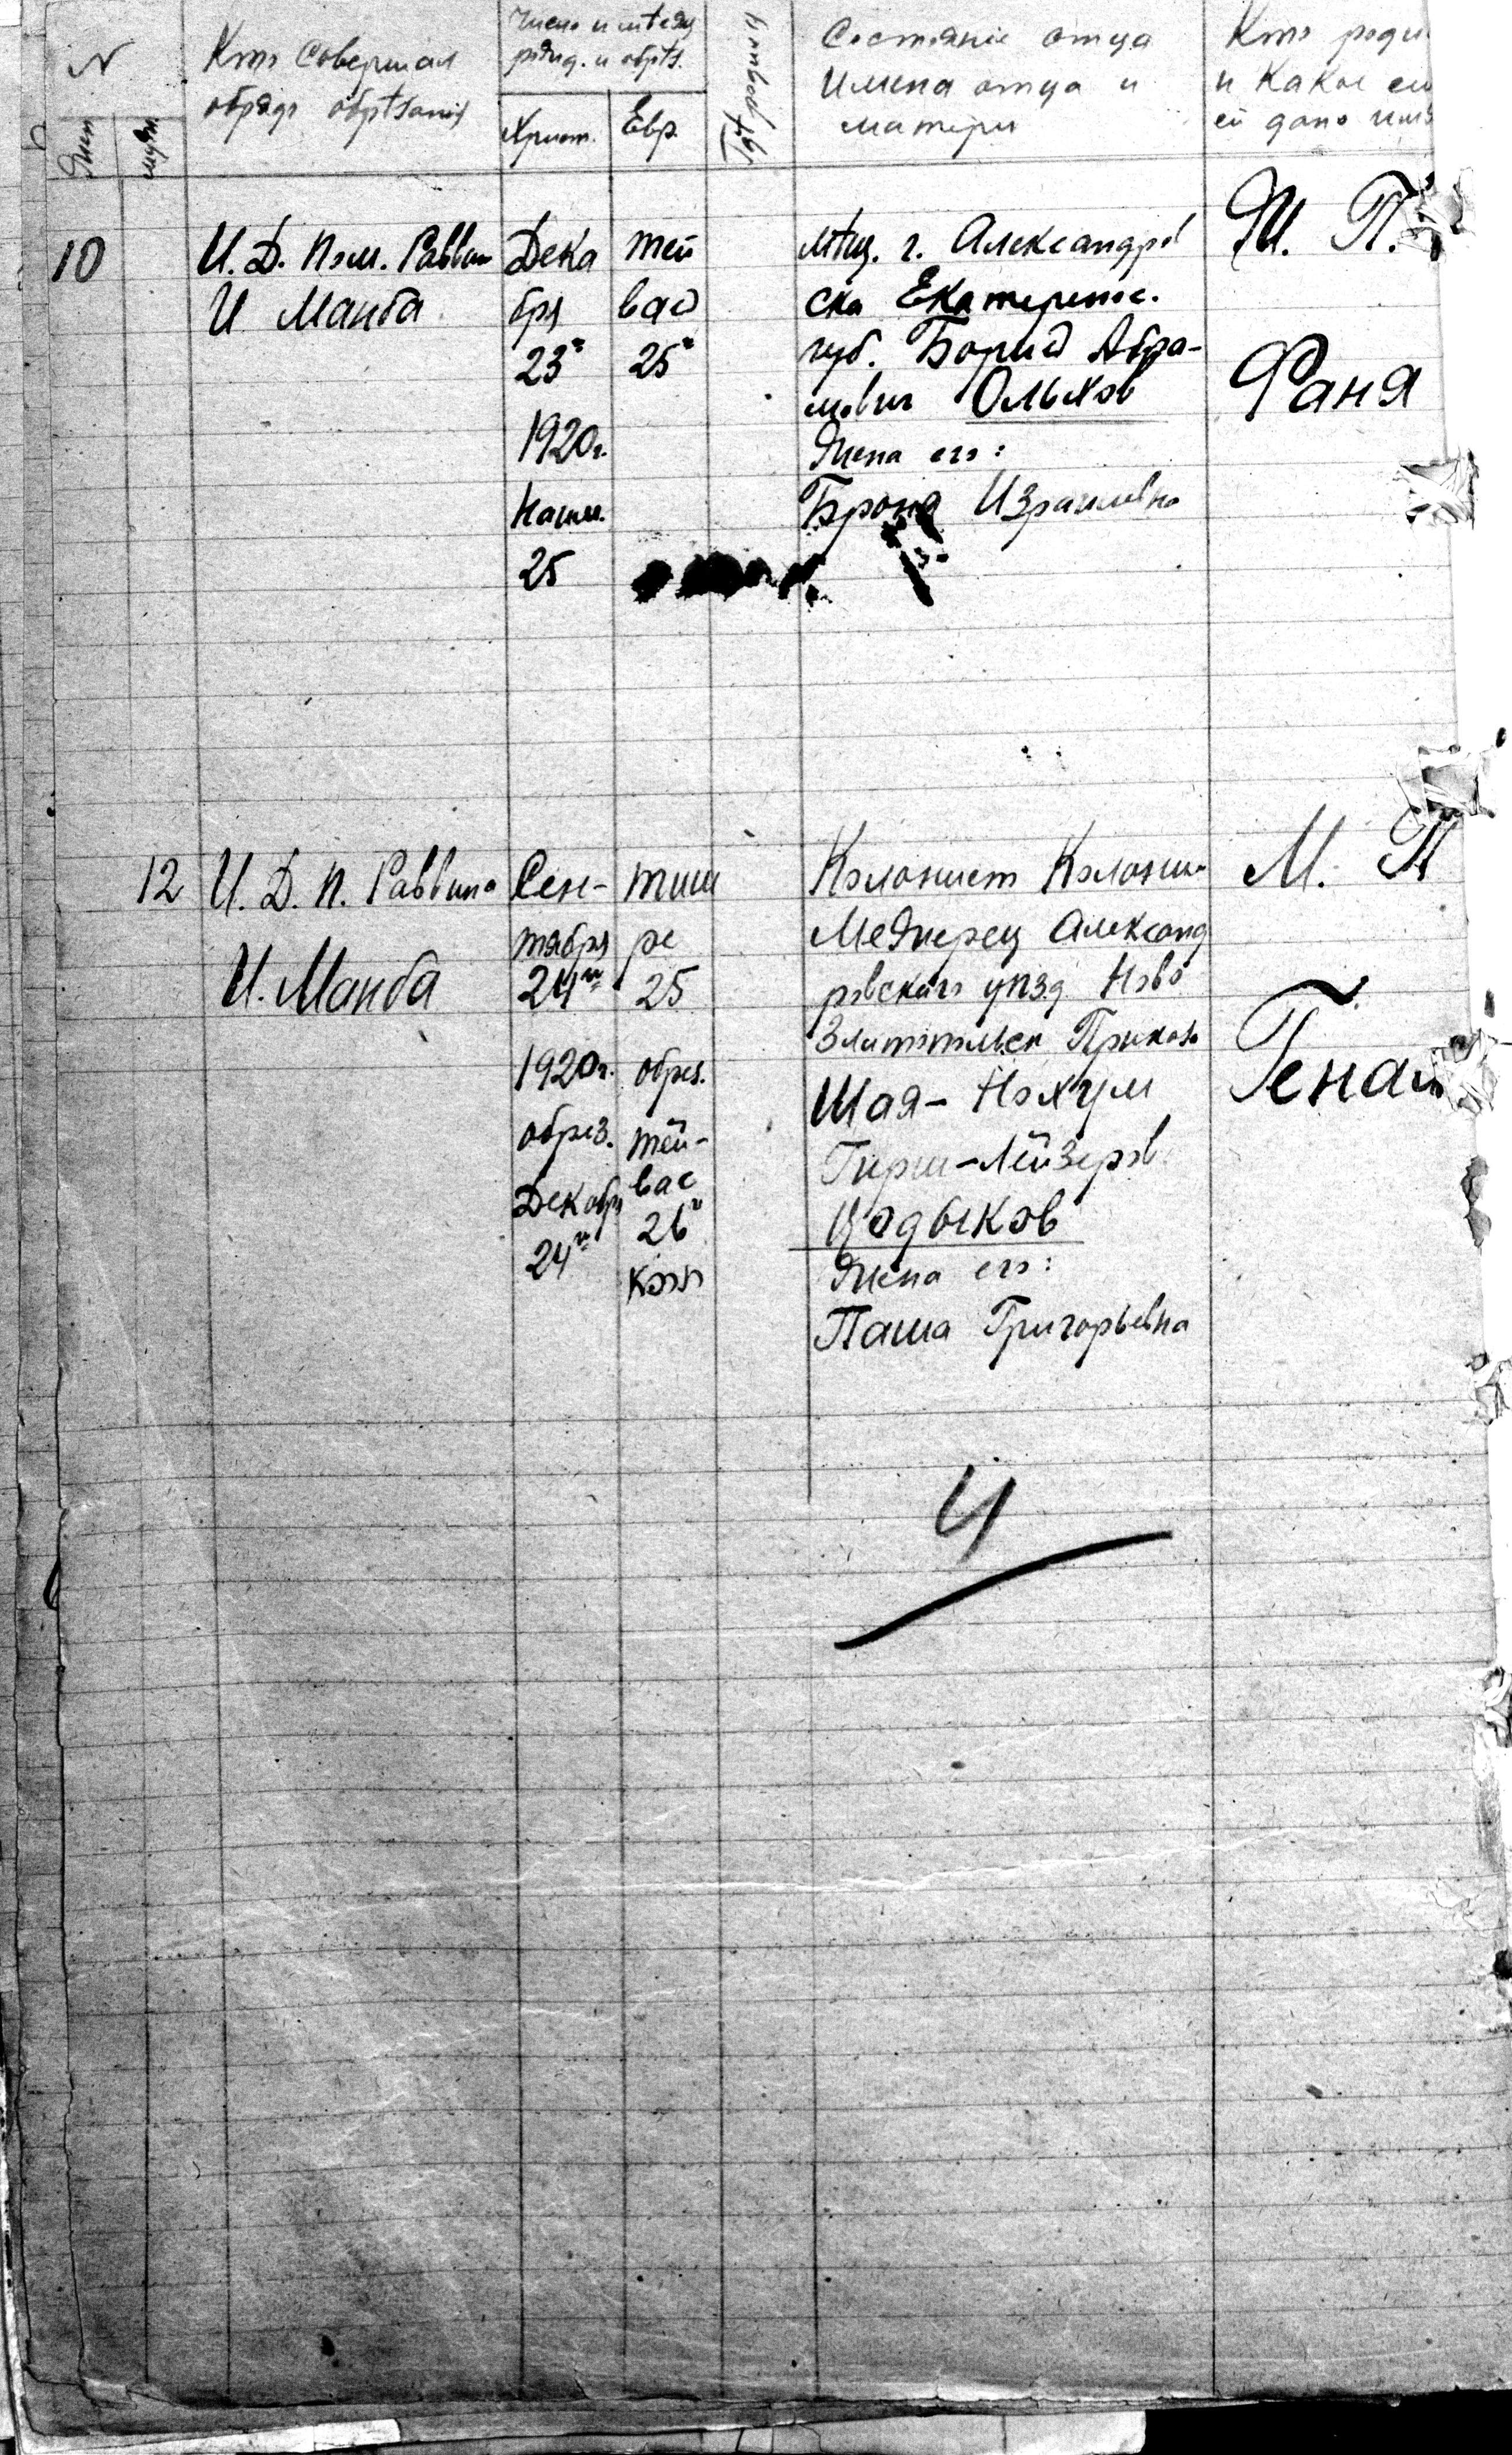 N
Кто Совершал
обрядъ обрѣзанія
Число и мѣсяц
рожд. и обрѣз.
Христ.
Евр.
Состояніе отца
Имена отца и
матери
Кто роди
и какое ему
ей дано имя
Жен
муж.
10
И. Д. Пом. Раввин
И Манба
Дека
бря
23го
1920г.
Наим.
25
Тей
вас
25го
мѣщ. г. Александров
ска Екатеринос.
губ. Борис Абра-
мович Ольхов
Жена его:
Броня Израилевна
Ж. П.
Фаня
12
И. Д. П. Раввина
И. Манба
Сен-
тября
24го
1920г.
обрез.
Декабря
24го
тиш
ре
25
обрез.
тей-
вас
26го
Колонист Колонии
Межиреч Александ
ровскаго уезд Ново
Златопольск Приказа
Шая-Нохум
Гирш-Лейзеров
Цодыков
Жена его:
Паша Григорьевна
М. П
Генах
4